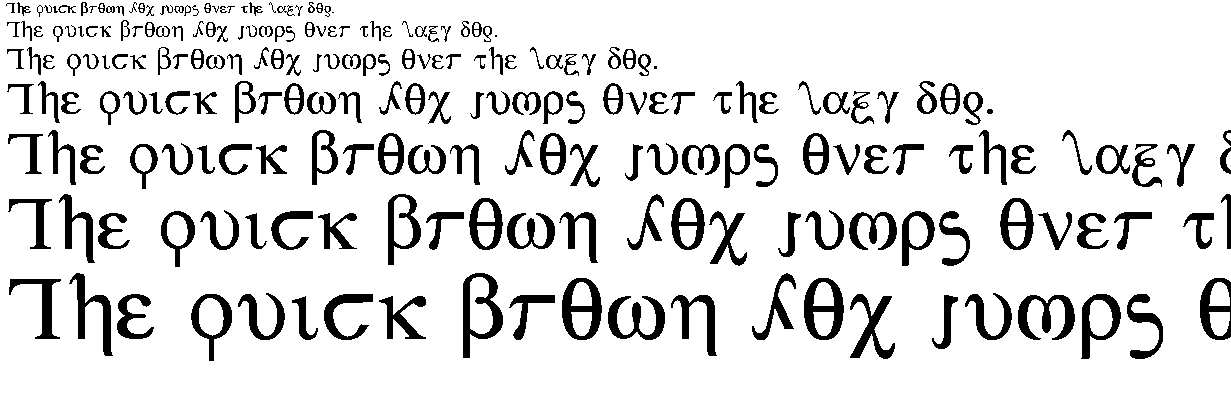 The quick brown fox jumps over the lazy dog.
The quick brown fox jumps over the lazy dog.
The quick brown fox jumps over the lazy dog.
The quick brown fox jumps over the lazy dog.
The quick brown fox jumps over the lazy d
The quick brown fox jumps over th
The quick brown fox jumps o